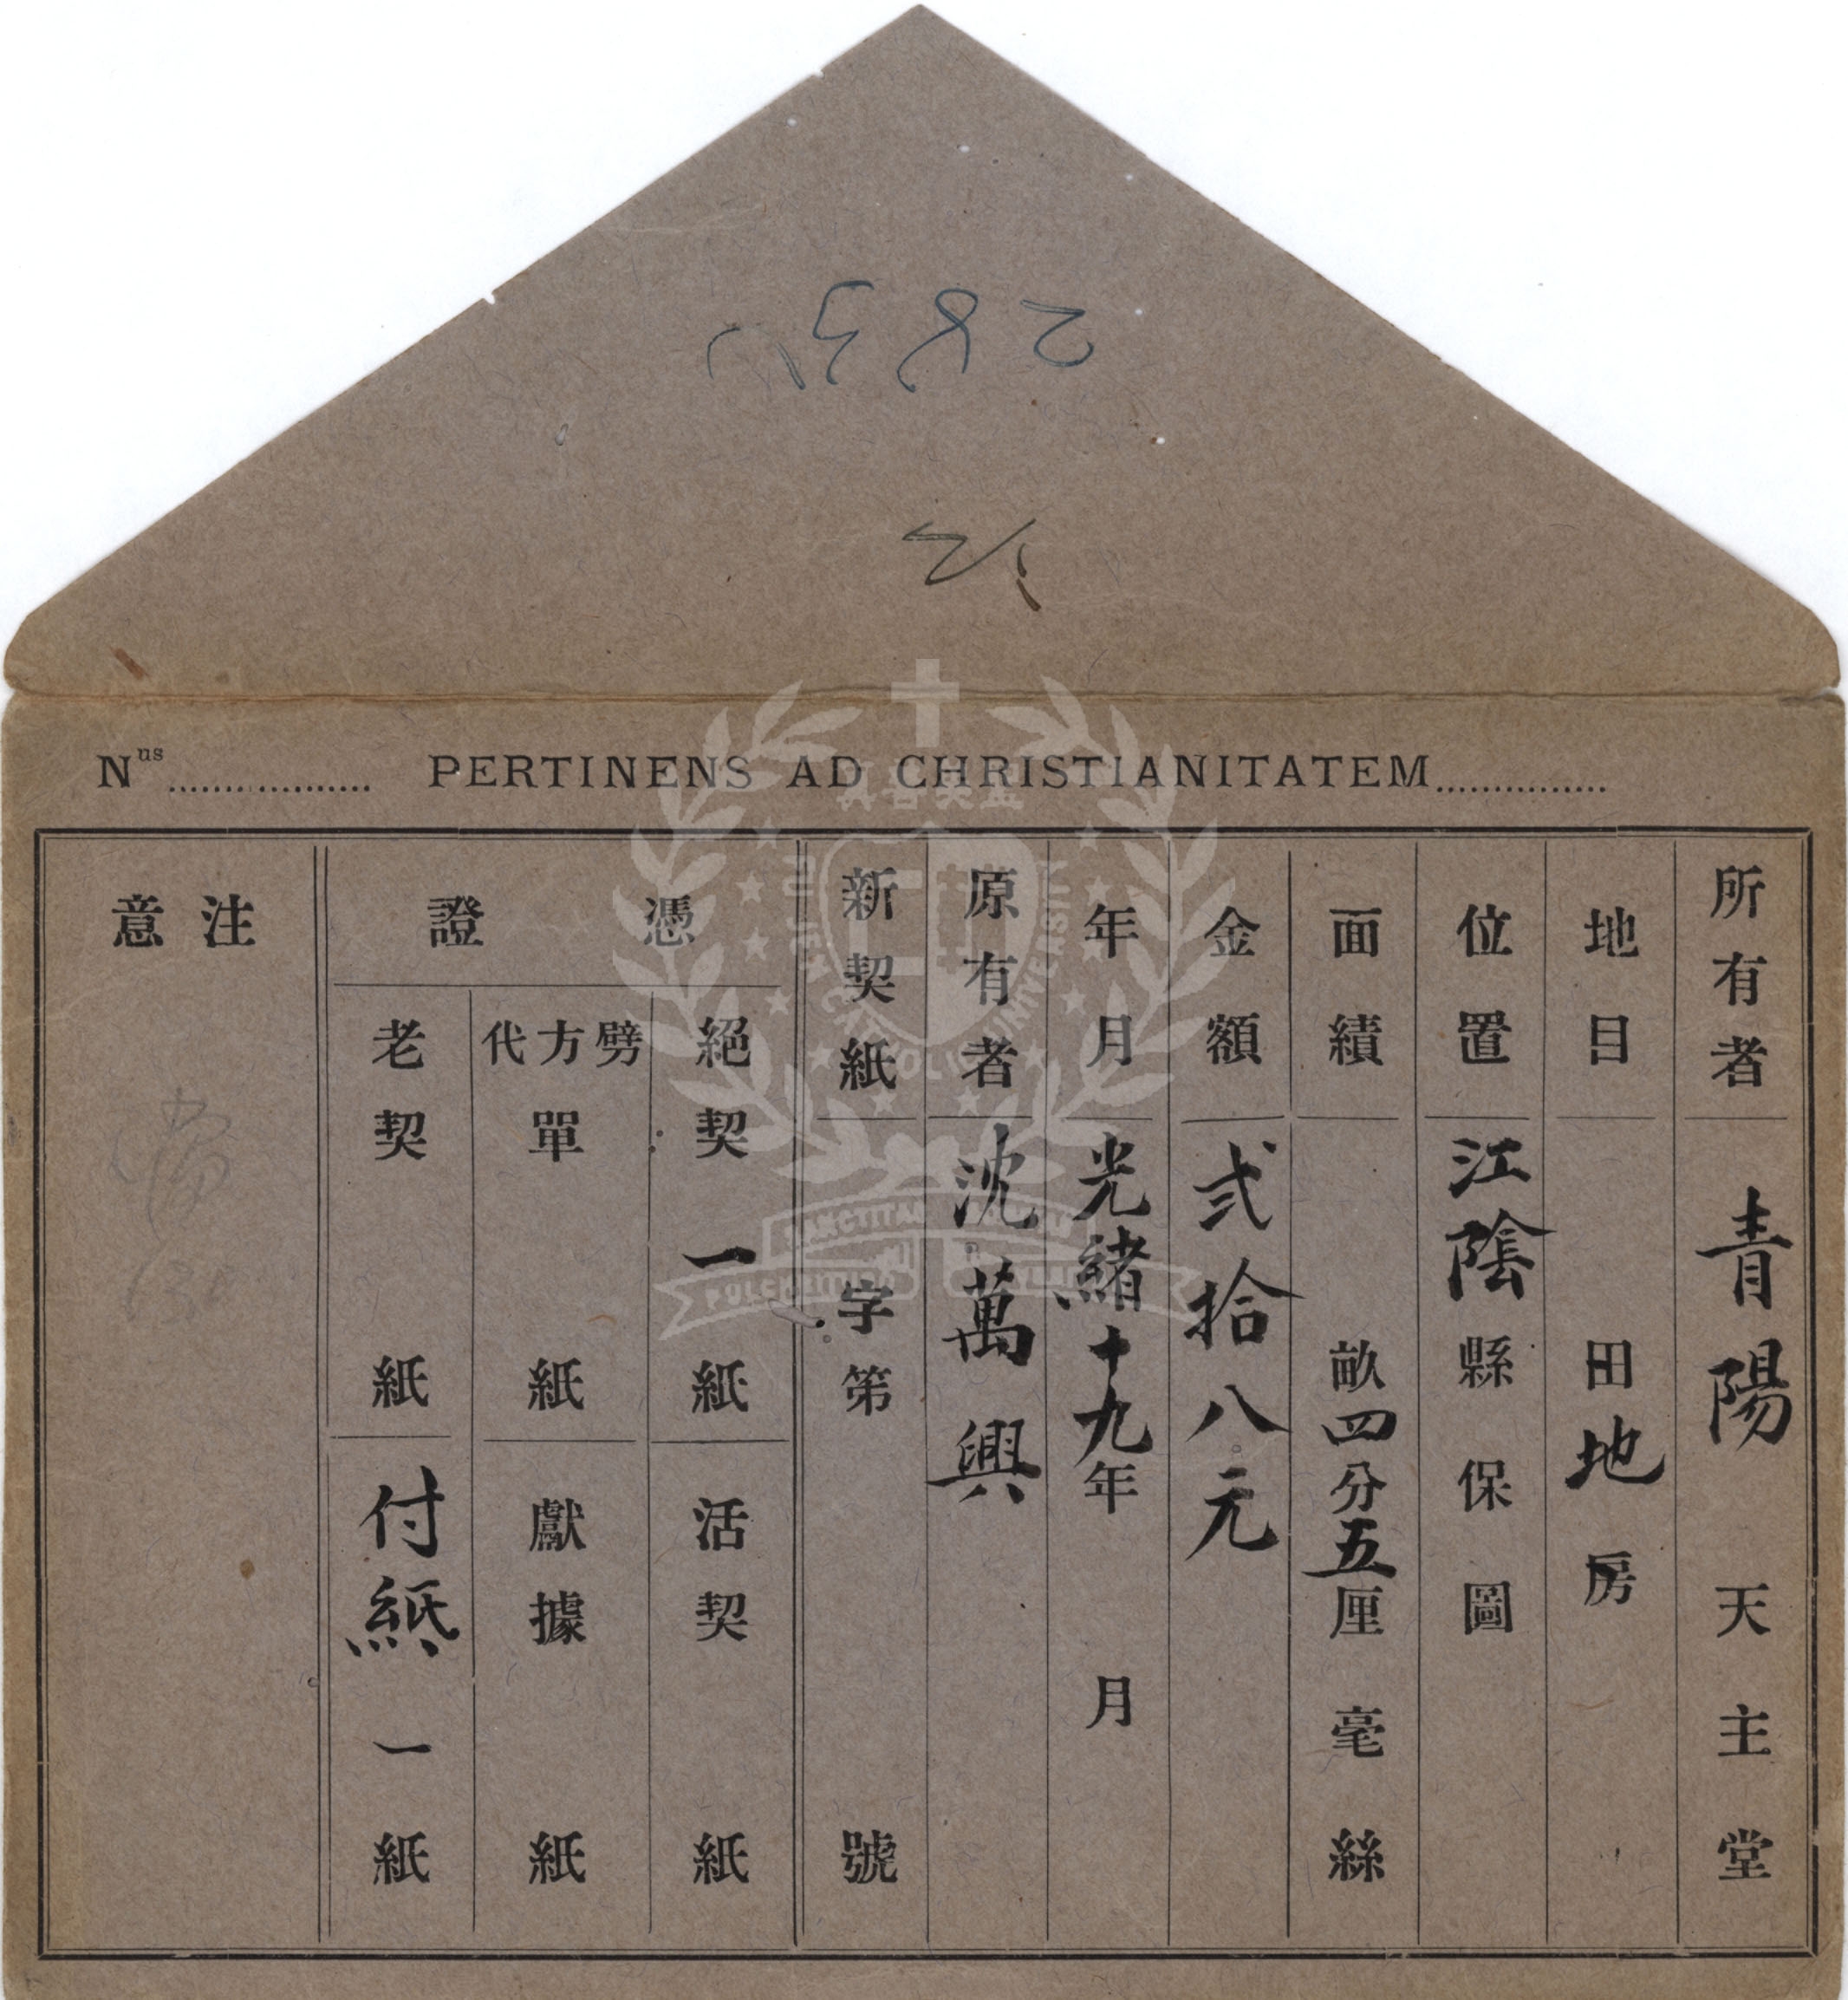 Nus.................. PERTINENS AD CHRISTIANITATEM...............
所有者 青陽 天主堂
地目 田地房
位置 江陰縣保圖
面績 畝四分五厘毫絲
金額 弍拾八元
年月 光緒十九年月
原有者 沈萬興
新契紙 字第號
憑證
絕契一紙 活契紙
劈方代單紙 獻據紙
老契紙 付紙一紙
注意